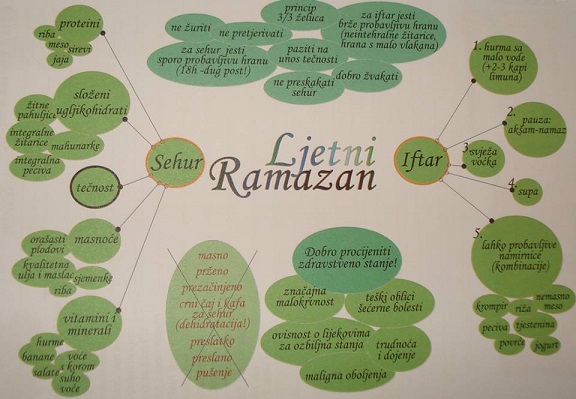 proteini
riba
meso
sirevi
jaja
složeni
ugljikohidrati
žitne
pahuljice
integralne
žitarice
mahunarke
integralna
peciva
tečnost
masnoće
orašasti
plodovi
kvalitetna
ulja i maslac
sjemenke
riba
vitamini i
minerali
hurme
banane
voće
s korom
salate
suho
voće
Sehur
ne žuriti
ne pretjerivati
princip
3/3 želuca
za iftar jesti
brže probavljivu hranu
(neintehralne žitarice,
hrana s malo vlakana)
za sehur jesti
sporo probavljivu hranu
(18h -dug post!)
paziti na
unos tečnosti
ne preskakati
sehur
dobro žvakati
Ljetni
Ramazan
Iftar
1. hurma sa
malo vode
(+2-3 kapi
limuna)
2.
pauza:
akšam-namaz
3.
svježa
voćka
4.
supa
5.
lahko probavljive
namirnice
(kombinacije)
krompir
riža
nemasno
meso
peciva
tjestenina
povrće
jogurt
masno
prženo
prezačinjeno
crni čaj i kafa
za sehur
(dehidratacija!)
preslatko
preslano
pušenje
Dobro procijeniti
zdravstveno stanje!
značajna
malokrvnost
teški oblici
šećerne bolesti
ovisnost o lijekovima
za ozbiljna stanja
trudnoća
i dojenje
maligna oboljenja